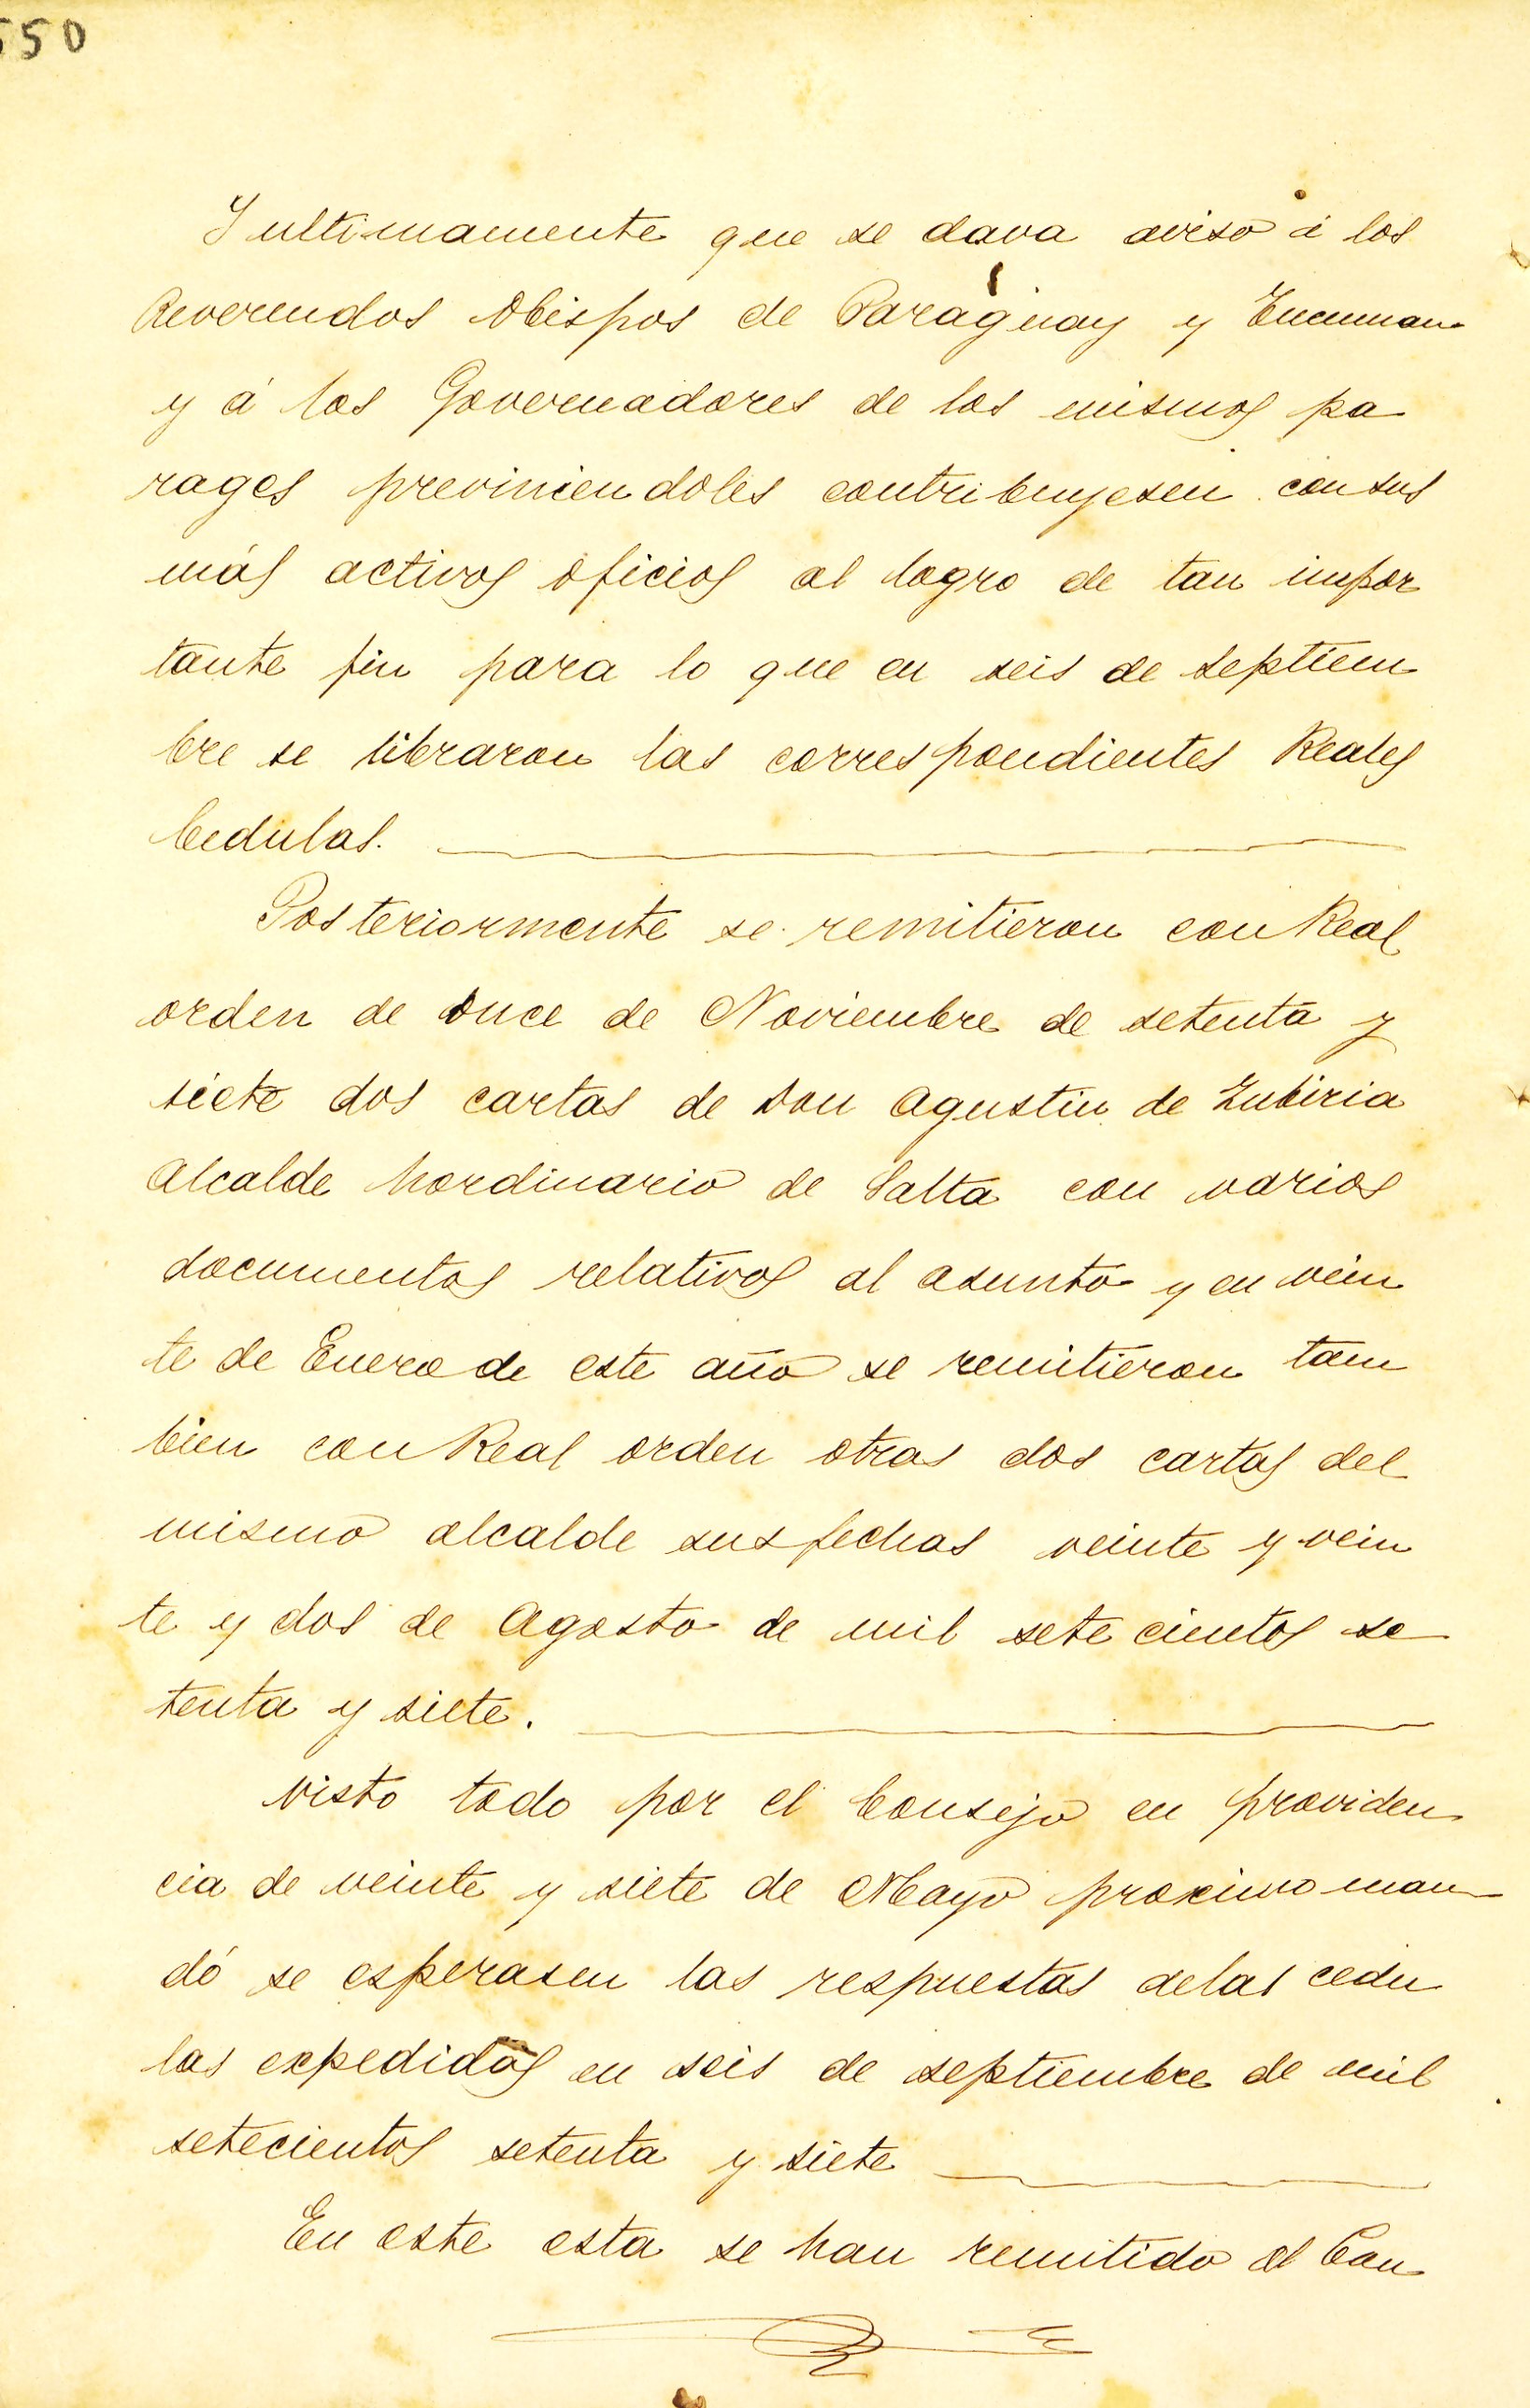 550
Y ultimamente que se dava aviso á los
Reverendos Obispos de Paraguay y Tucuman
y á los Governadores de los mismos pa
rages previniendoles contribuyesen con sus
más activos oficios al logro de tan impor
tante fin para lo que en seis de septiem
bre se libraron las correspondientes Reales
Cedulas.
Posteriormente se remitieron con Real
orden de once de Noviembre de setenta y
siete dos cartas de Don Agustin de Zubiria
Alcalde hordinario de Salta con varios
documentos relativos al asunto y en vein
te de Enero de este año se remitieron tam
bien con Real orden otras dos cartas del
mismo alcalde sus fechas veinte y vein
te y dos de Agosto de mil sete cientos se
tenta y siete.
Visto todo por el Consejo en providen
cia de veinte y siete de Mayo proximo man
dó se esperasen las respuestas delas cedu
las expedidas en seis de septiembre de mil
setecientos setenta y siete
En este esta se han remitido al Con